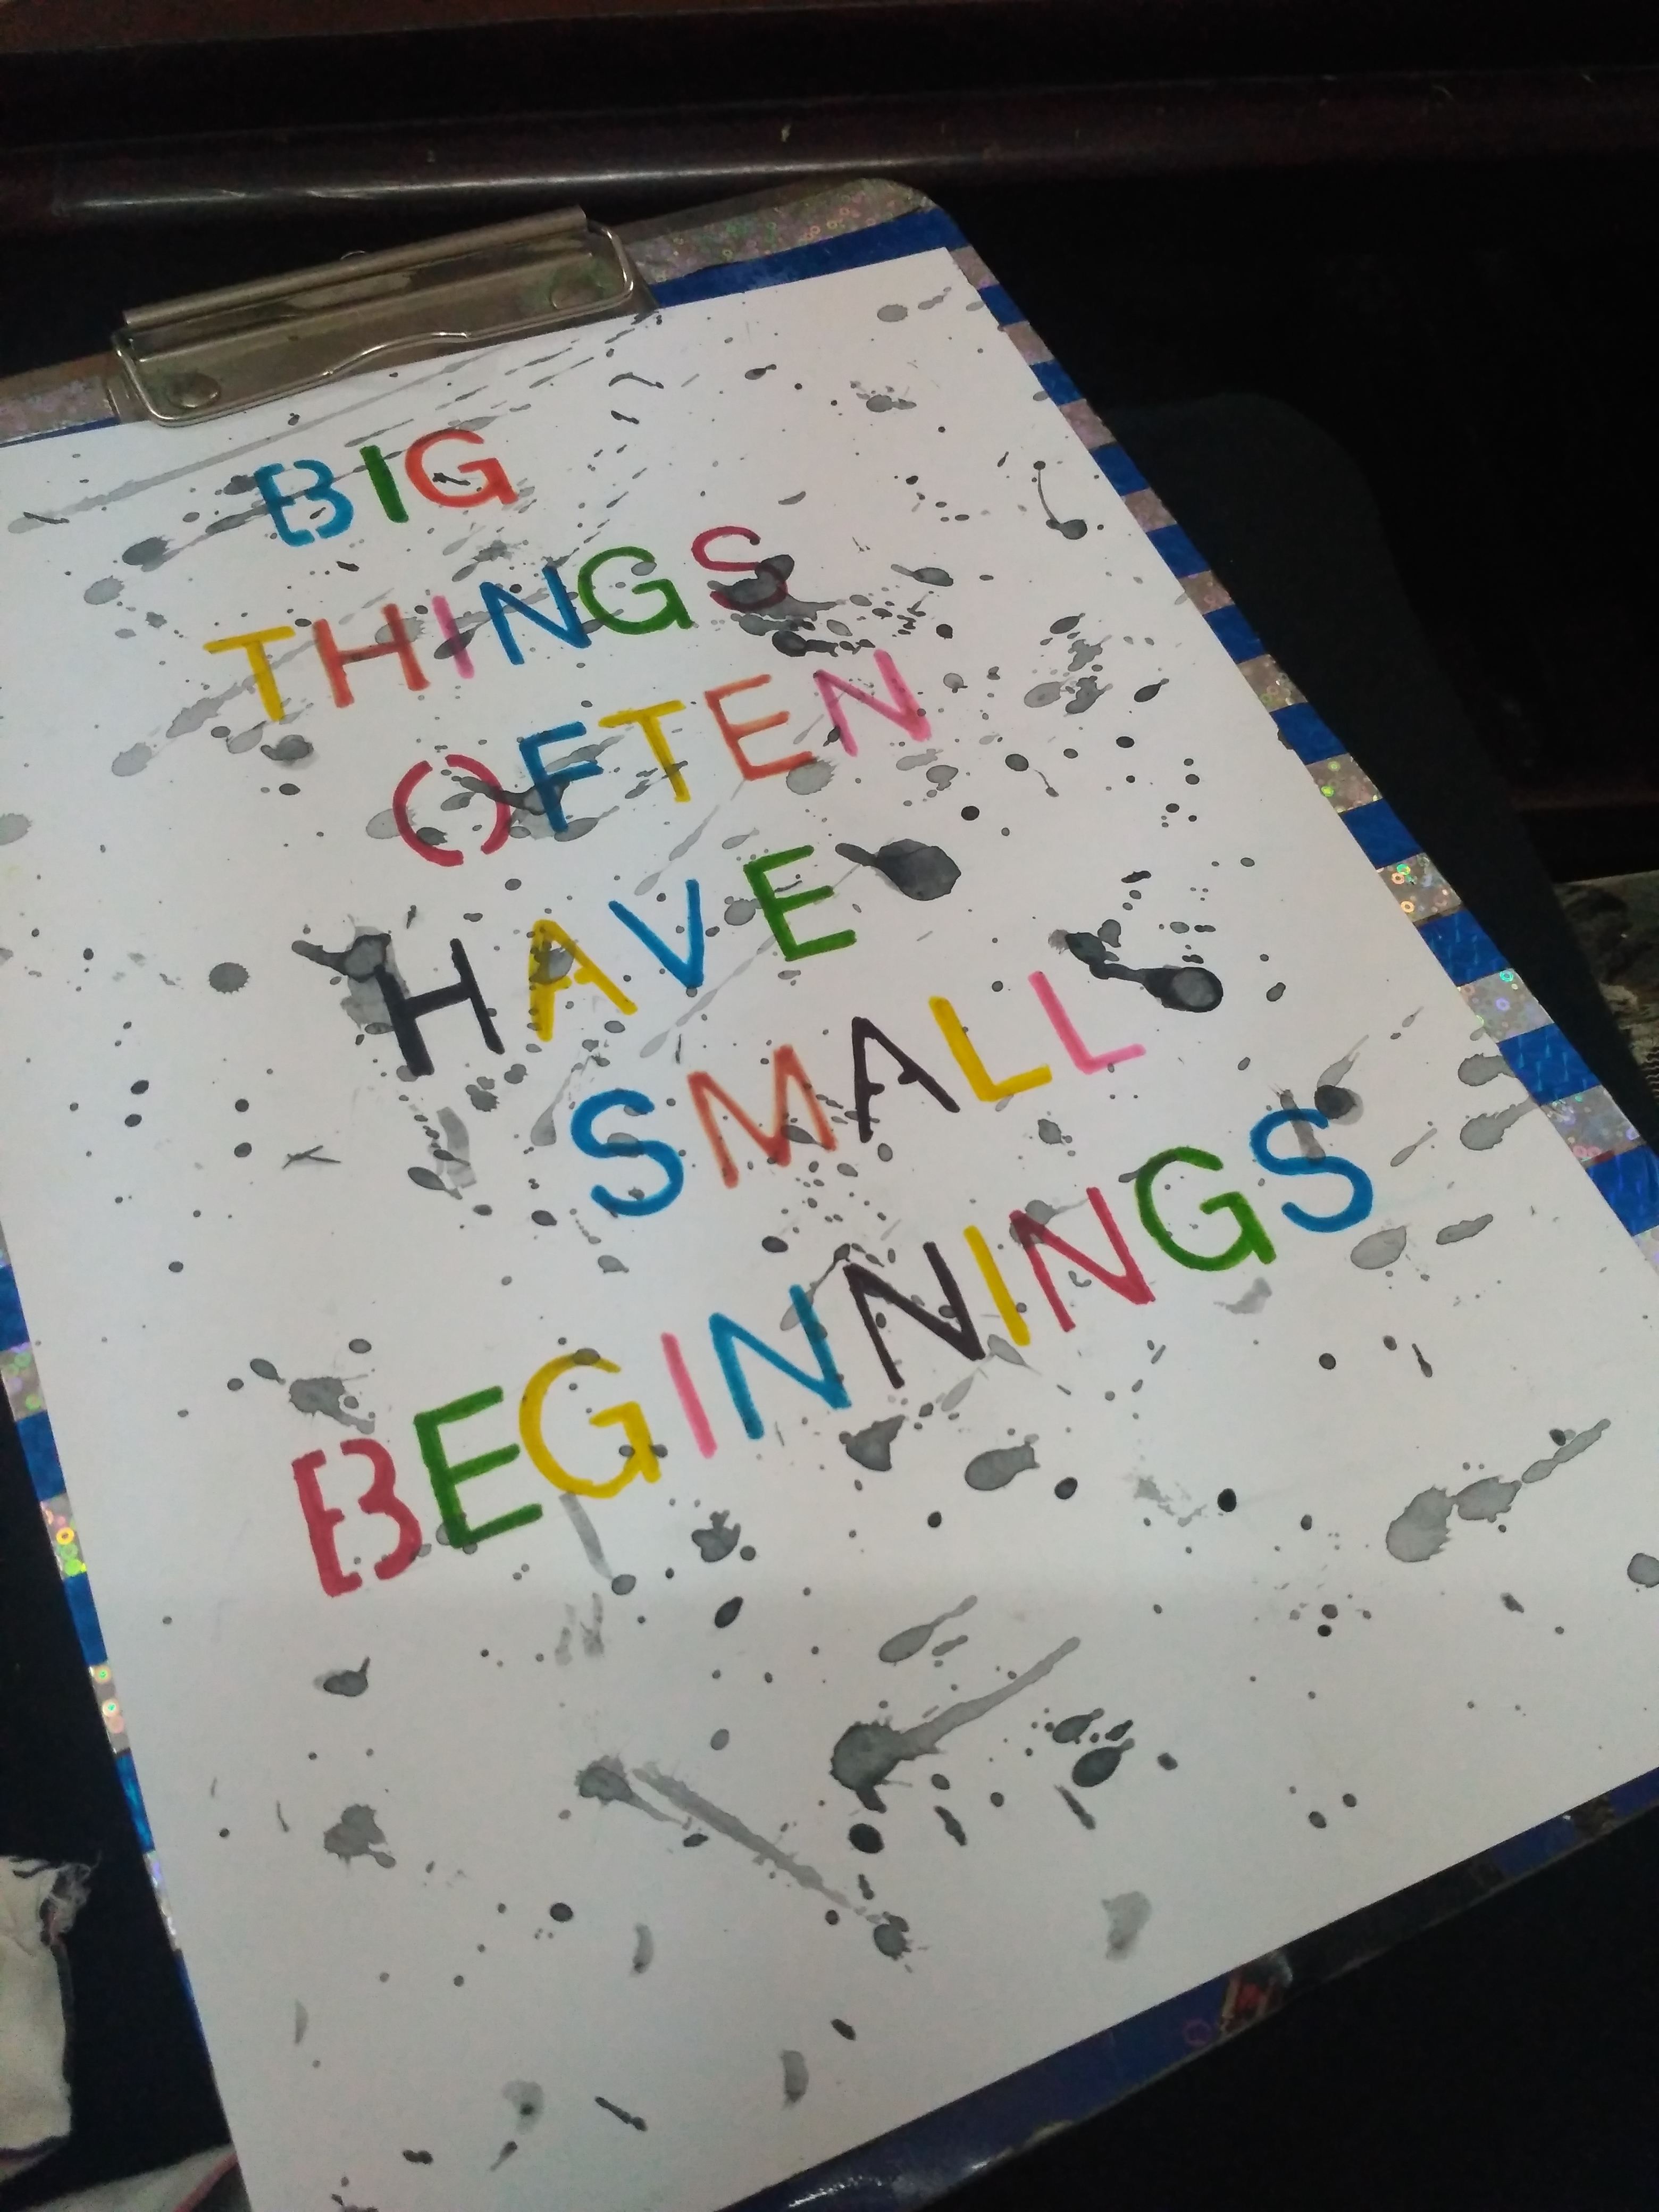 BIG
THINGS
OFTEN
HAVE
SMALL
BEGINNINGS